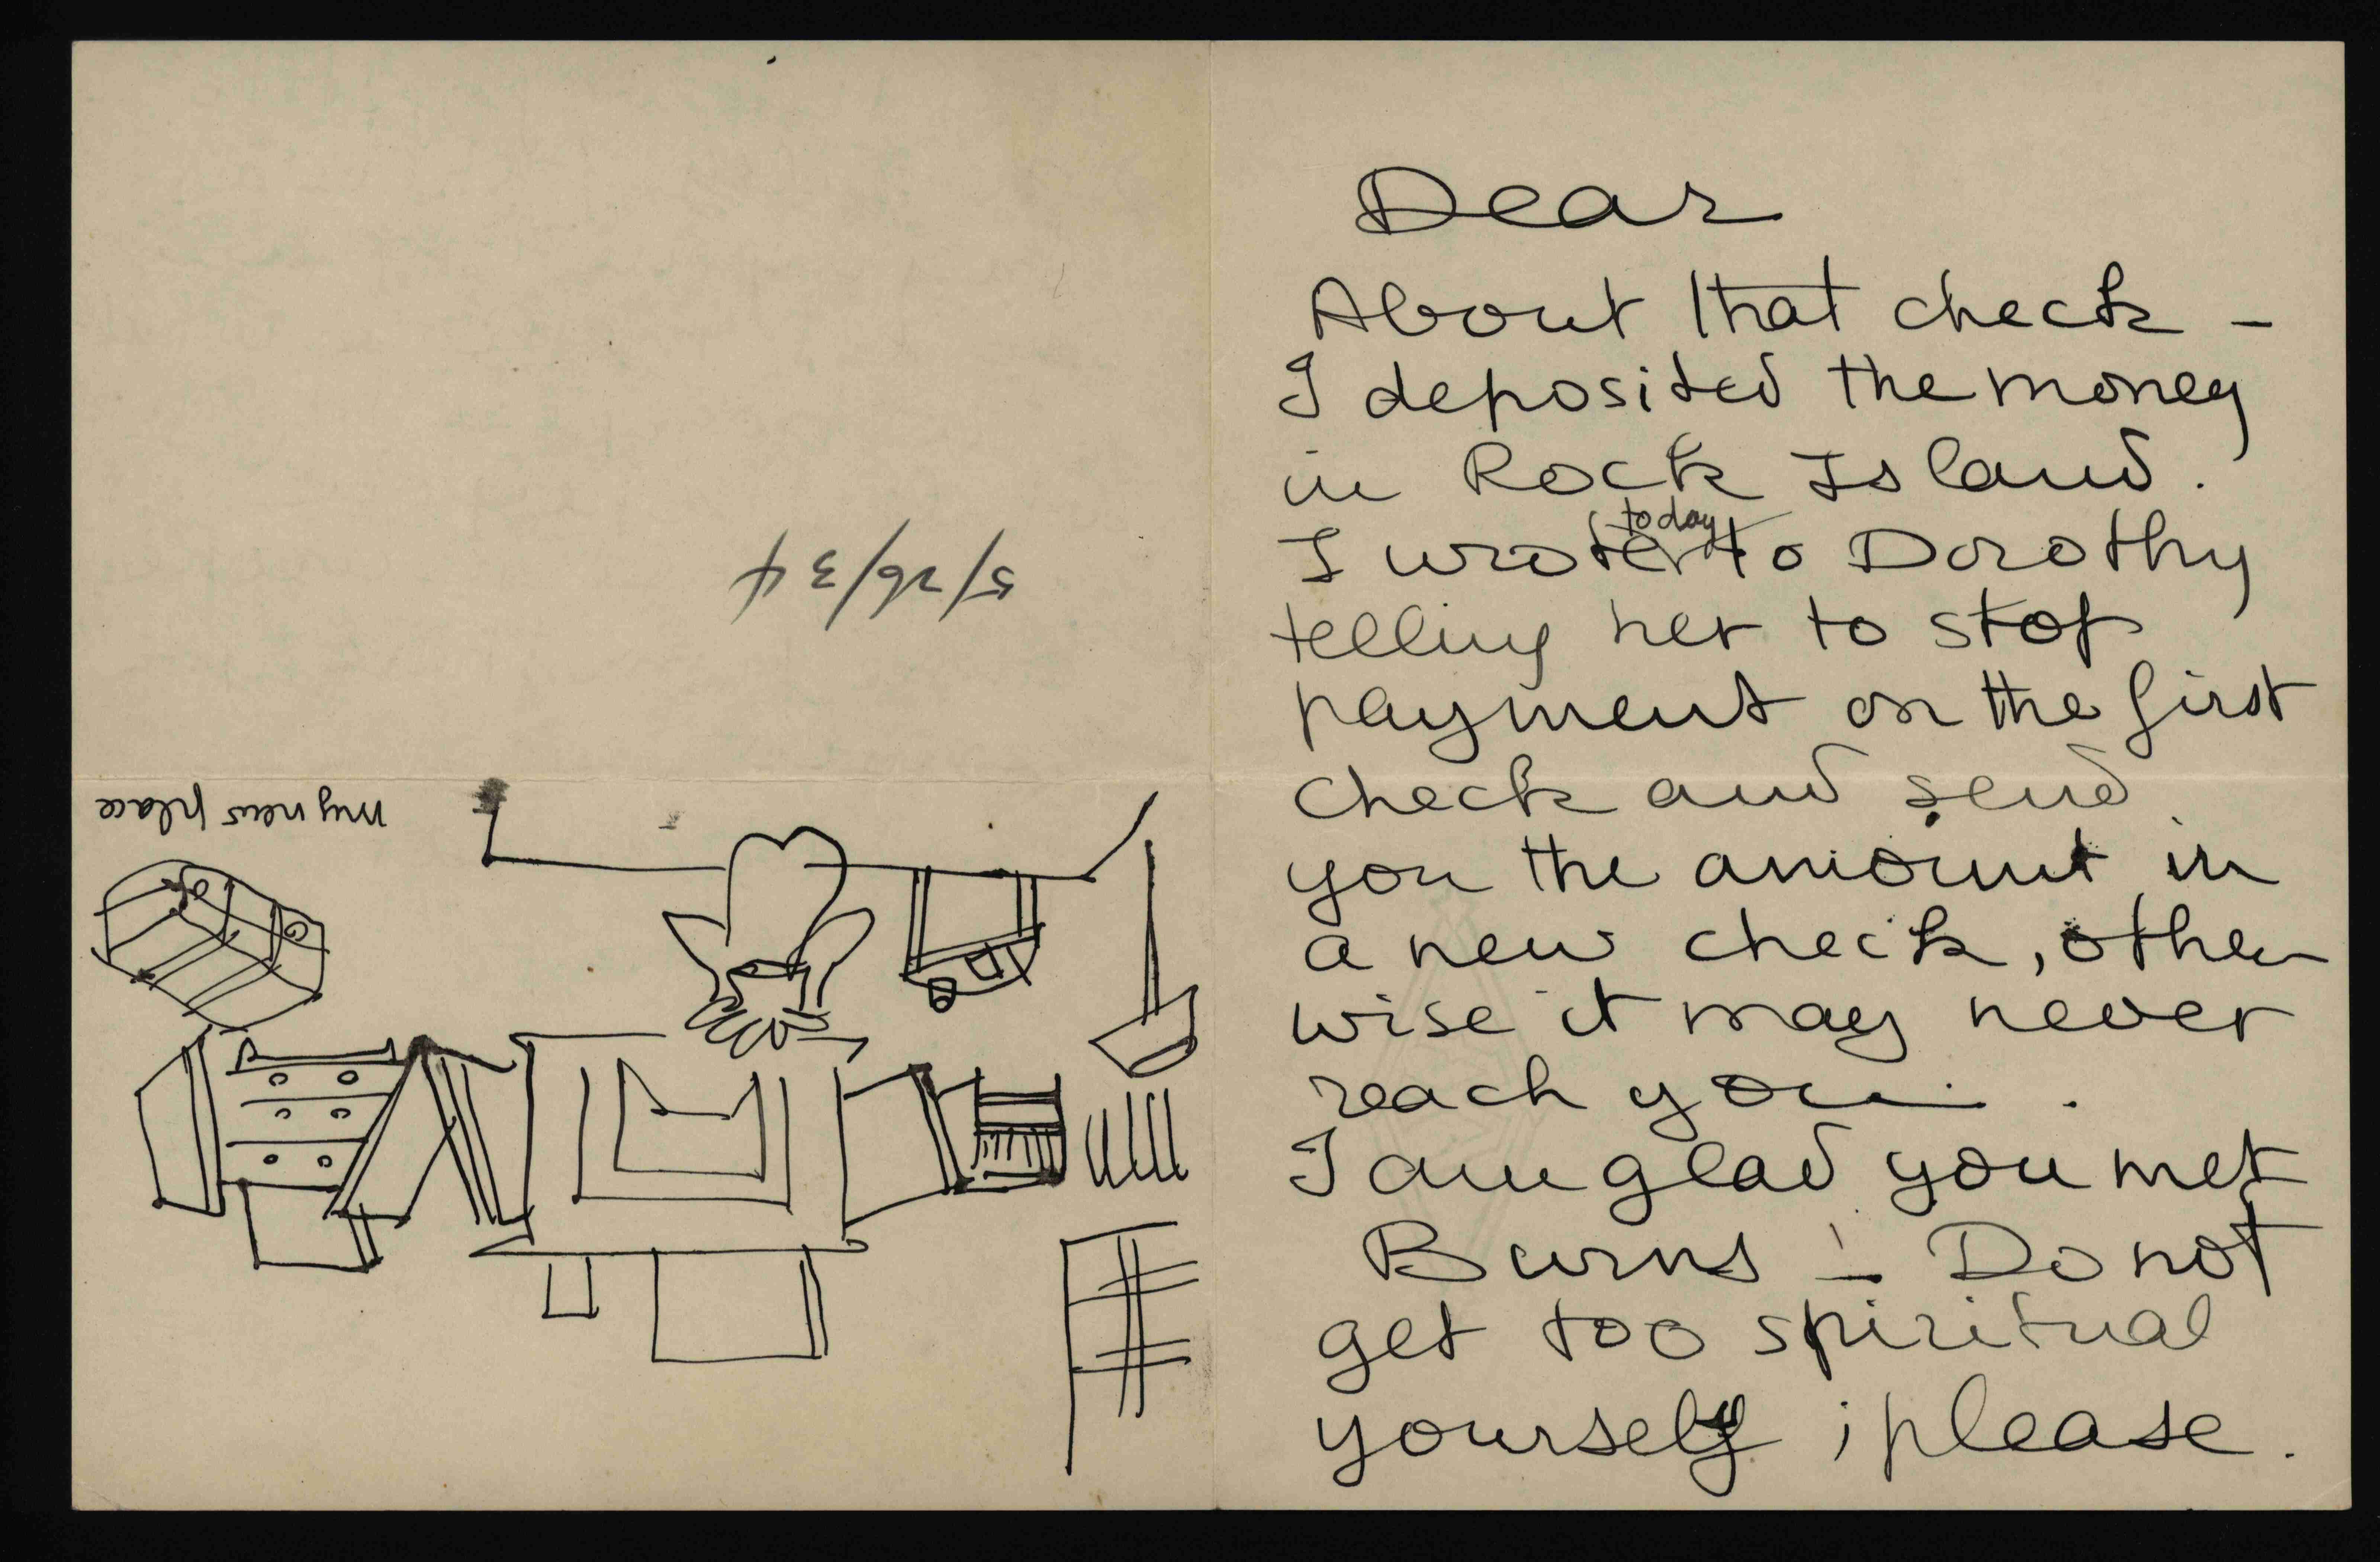 Dear
About that check –
I deposited the money
in Rock Island.
I wrote today to Dorothy
telling her to stop
payment on the first
check and send
you the amount in
a new check, other
wise it may never
reach you.
I am glad you met
Burns – Do not
get too spiritual
yourself ; please.
5/26/34
my new place